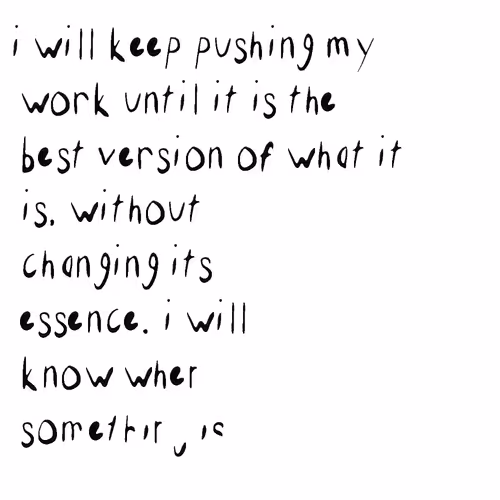 i will keep pushing my
work until it is the
best version of what it
is. without
changing its
essence. i will
know when
something is